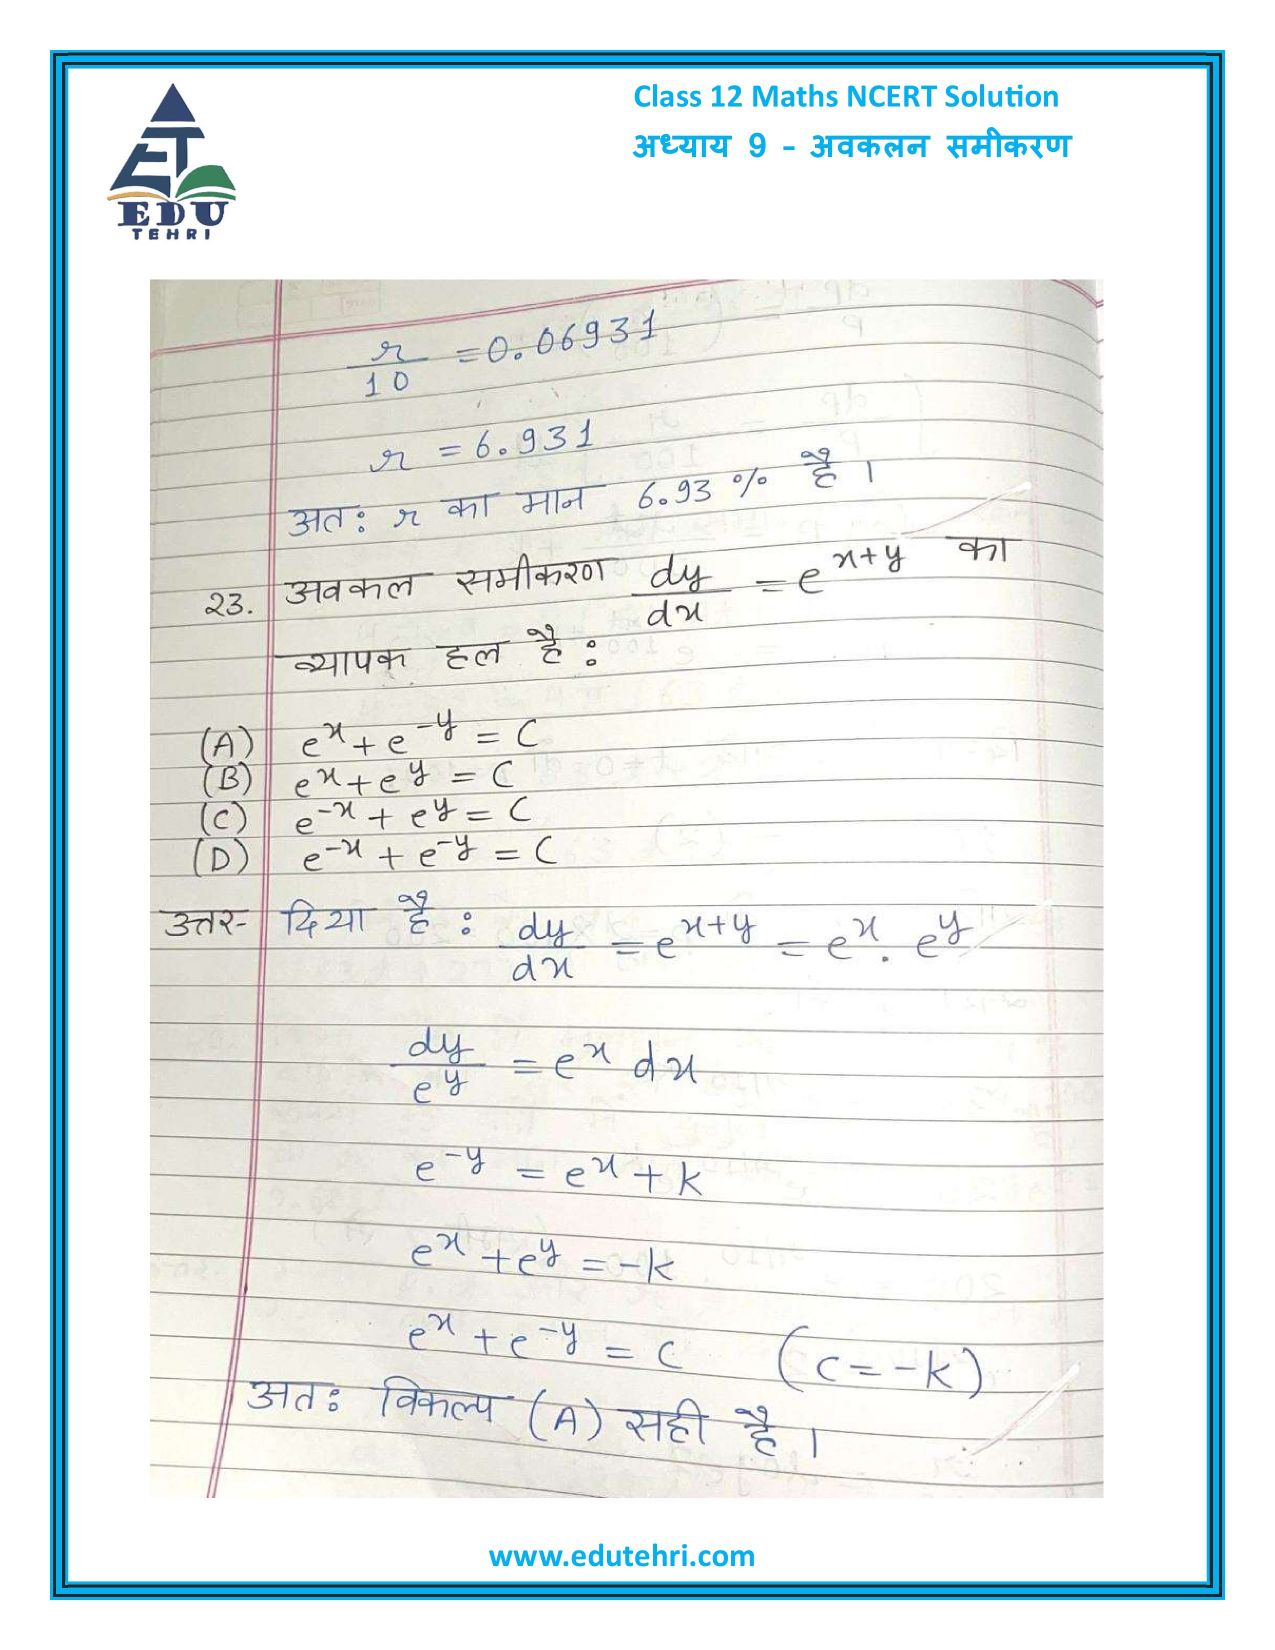 Class 12 Maths NCERT Solution
अध्याय 9 - अवकलन समीकरण
EDU
TEHRI
r/10 = 0.06931
r = 6.931
अतः r का मान 6.93 % है।
23. अवकल समीकरण dy/dx = e^(x+y) का
व्यापक हल है :
(A) e^x + e^-y = C
(B) e^x + e^y = C
(C) e^-x + e^y = C
(D) e^-x + e^-y = C
उत्तर- दिया है : dy/dx = e^(x+y) = e^x . e^y
dy/e^y = e^x dx
e^-y = e^x + k
e^x + e^y = -k
e^x + e^-y = c (c = -k)
अतः विकल्प (A) सही है।
www.edutehri.com